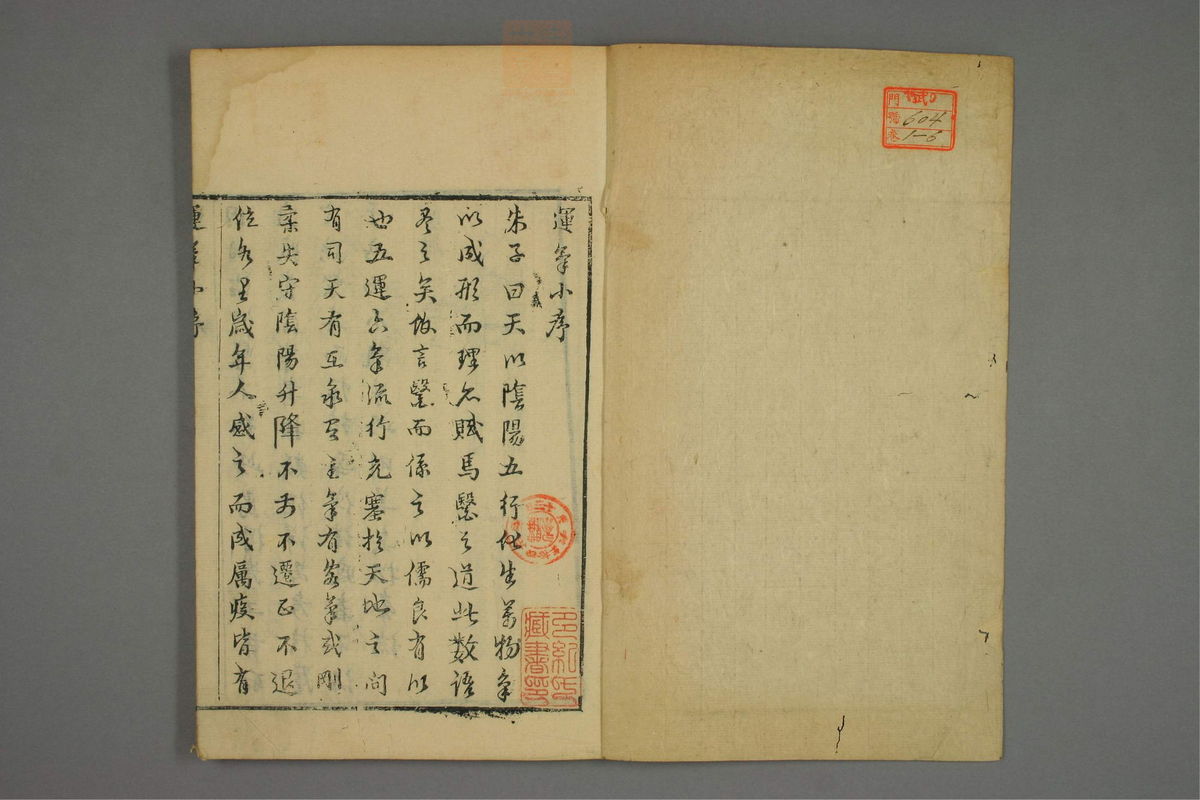 門
號 604
卷 1-6
運氣小序
朱子曰天以陰陽五行化生萬物氣
以成形而理亦賦焉醫之道此数語
尽之矣故言醫而係之以儒良有以
也五運六氣流行充塞於天地之间
有司天有在泉有主氣有客氣或剛
柔失守陰陽升降不前不遷正不退
位各呈歲年人感之而成厲疫皆有
運氣小序
多紀氏
藏書印